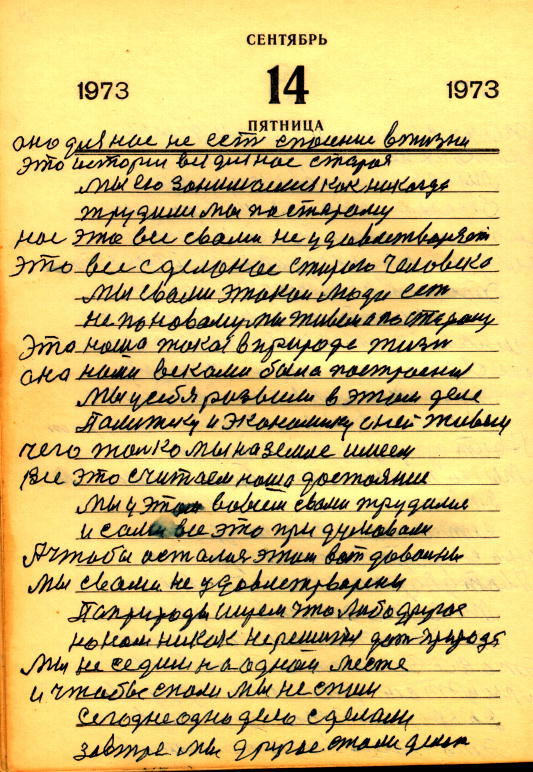 СЕНТЯБРЬ
1973 14 1973
ПЯТНИЦА
оно для нас не есть спасение в жизни
это истории все для нас старая
мы ею занимались как никогда
трудили мы по старому
нас это все свами не удовлетворяет
это все сделоное старого человека
мы свами этакаи люди есть
не по новаму мы живем а по старому
Это наша такая в природе жизн
она нами веками была построена
Мы у себя развили в этом деле
Палитику и Экономику с ней живем
чего толко мы на земле имеем
Все это считаем наша достояние
мы у этом во всем свами трудилис
и сами все это придумовали
А чтобы остался этим вот даволны
Мы свами не удовлетворены
Паприроды ищем что либо другое
но нам никак не
Мы не седим на одном месте
и чтобы спали мы не спим
сегодне одно дело сделали
завтре мы другое стали делат